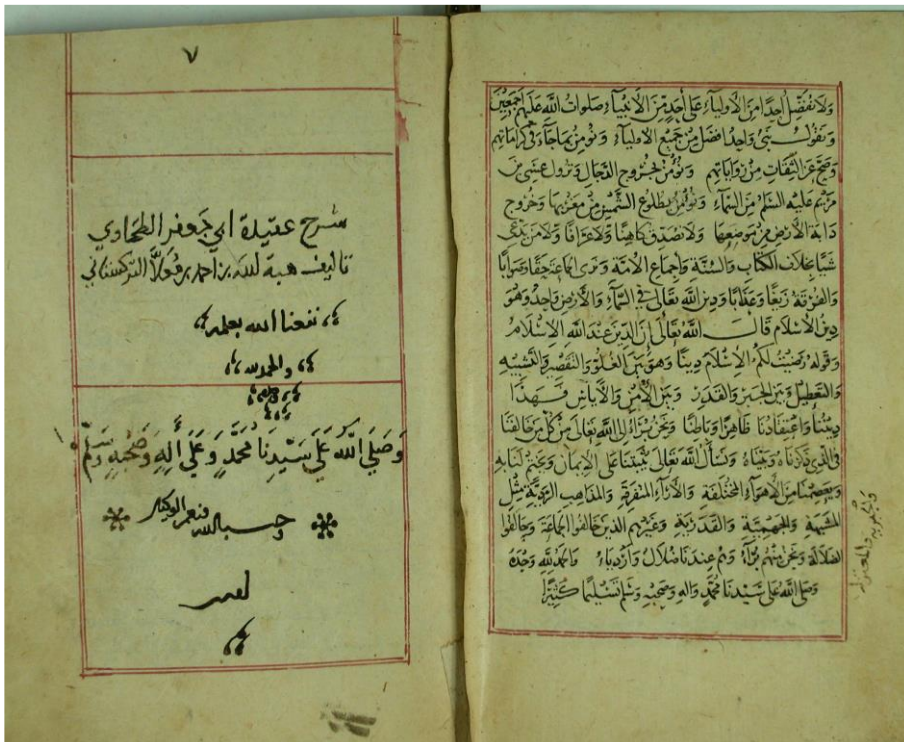 ولا نفضل احدا من الأولياء على أحد من الأنبياء صلوات الله عليهم أجمعين
ونقول نبي واحد افضل من جميع الاولياء ونؤمن بما جاء في كراماتهم
وصح عن الثقات من رواياتهم ونؤمن بخروج الدجال ونزول عيسى بن
مريم عليه السلم من السماء ونؤمن بطلوع الشمس من مغربها وخروج
دابة الأرض من موضعها ولا نصدق كاهنا ولا عرافا ولا من يدعي
شيا بخلاف الكتاب والسنة وإجماع الامة ونرى الجماعة حقا وصوابا
والفرقة زيغا وعذابا ودين الله تعالى في السماء والأرض واحد وهو
دين الاسلام قال الله تعالى إن الدين عند الله الإسلام
وقوله رضيت لكم الإسلام دينا وهو بين الغلو والتقصير والتشبيه
والتعطيل وبين الجبر والقدر وبين الأمن والاياس فهذا
ديننا واعتقادنا ظاهرا وباطنا ونحن براء إلى الله تعالى من كل من خالفنا
في الذي ذكرناه وبيناه ونسأل الله تعالى يثبتنا على الإيمان ويختم لنا به
ويعصمنا من الأهواء المختلفة والأراء المتفرقة والمذاهب الردية مثل
المشبهة والجهمية والقدرية وغيرهم الذين خالفوا الجماعة وحالفوا
الضلالة ونحن منهم براء وهم عندنا ضلال وأردياء والحمد لله وحده
وصلى الله على سيدنا محمد واله وصحبه وسلم تسليما كثيرا
والجبرية والمعتزلة
٧
شرح عقيدة ابي جعفر الطحاوي
تاليف هبة الله بن احمد بن مُعلَّا التركستاني
نفعنا الله بعلمه
والحمد لله
وصلى الله على سيدنا محمد وعلى أله وصحبه وسلم
وحسبنا الله ونعم الوكيل